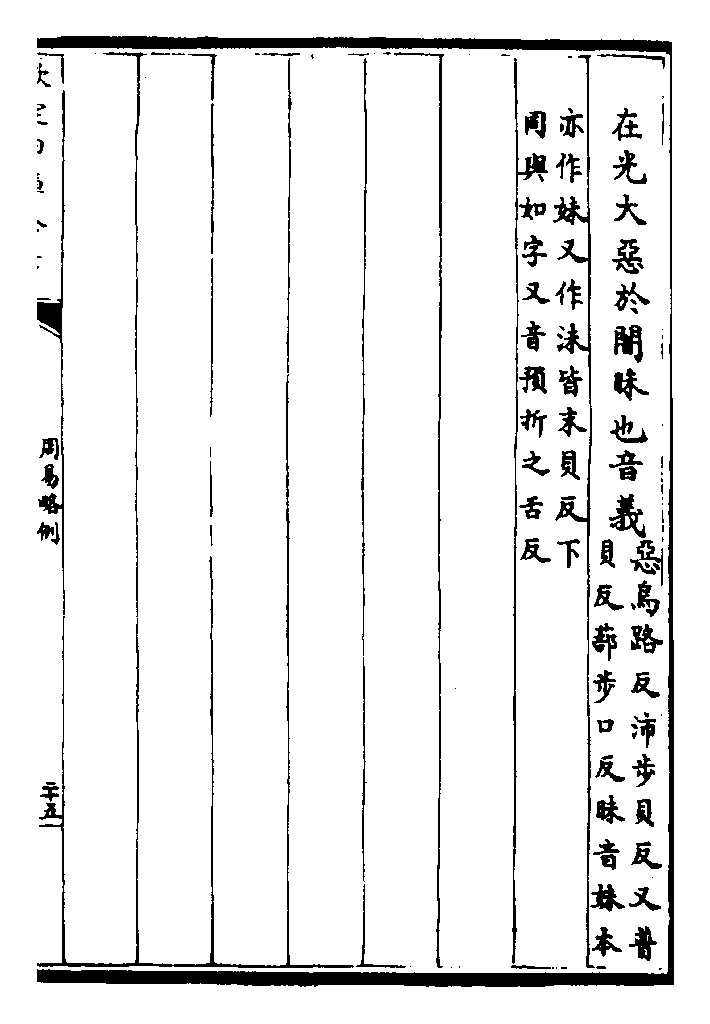 在光大惡於闇昧也音義
惡烏路反沛步貝反又普
貝反蔀步口反昧音妹本
亦作妹又作沬皆末貝反下
同與如字又音預折之舌反
欽定四庫全書
周易略例
二十五